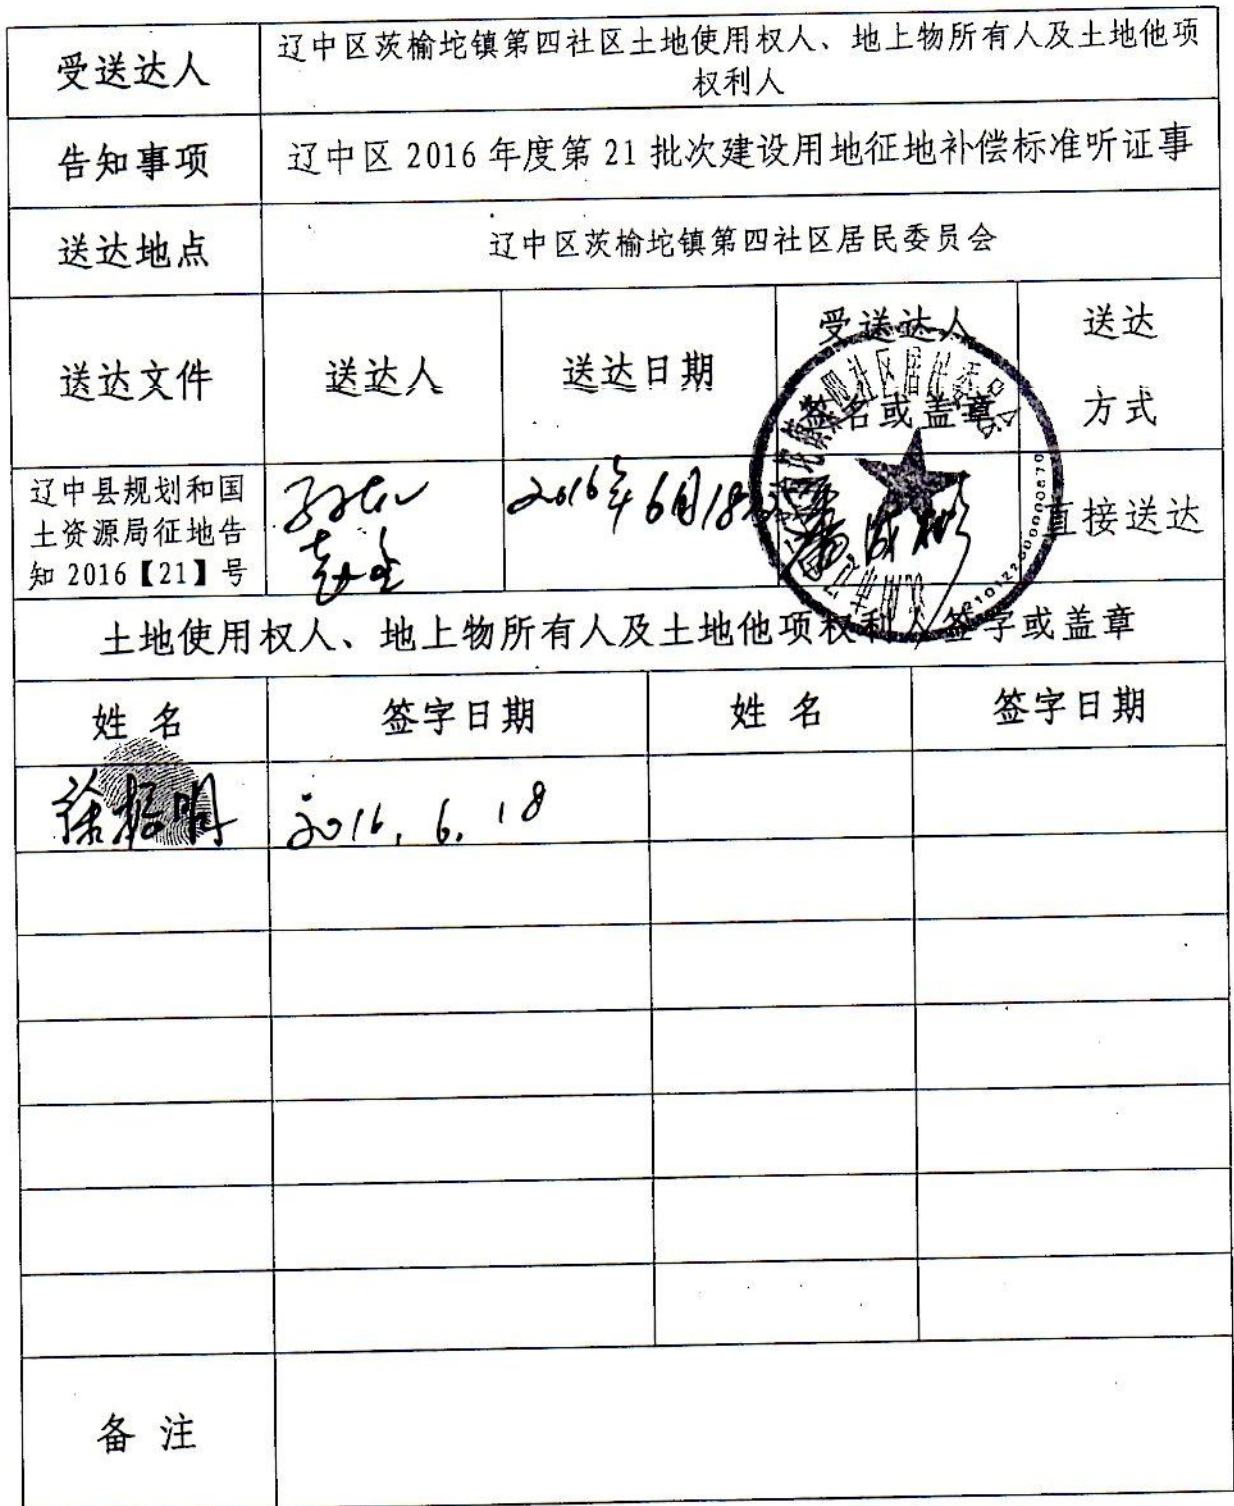 受送达人
辽中区茨榆坨镇第四社区土地使用权人、地上物所有人及土地他项
权利人
告知事项
辽中区 2016 年度第 21 批次建设用地征地补偿标准听证事
送达地点
辽中区茨榆坨镇第四社区居民委员会
送达文件
送达人
送达日期
受送达人
签名或盖章
送达
方式
辽中县规划和国
土资源局征地告
知 2016【21】号
2016年6月18日
直接送达
土地使用权人、地上物所有人及土地他项权利人签字或盖章
姓 名
签字日期
姓 名
签字日期
2016.6.18
备 注